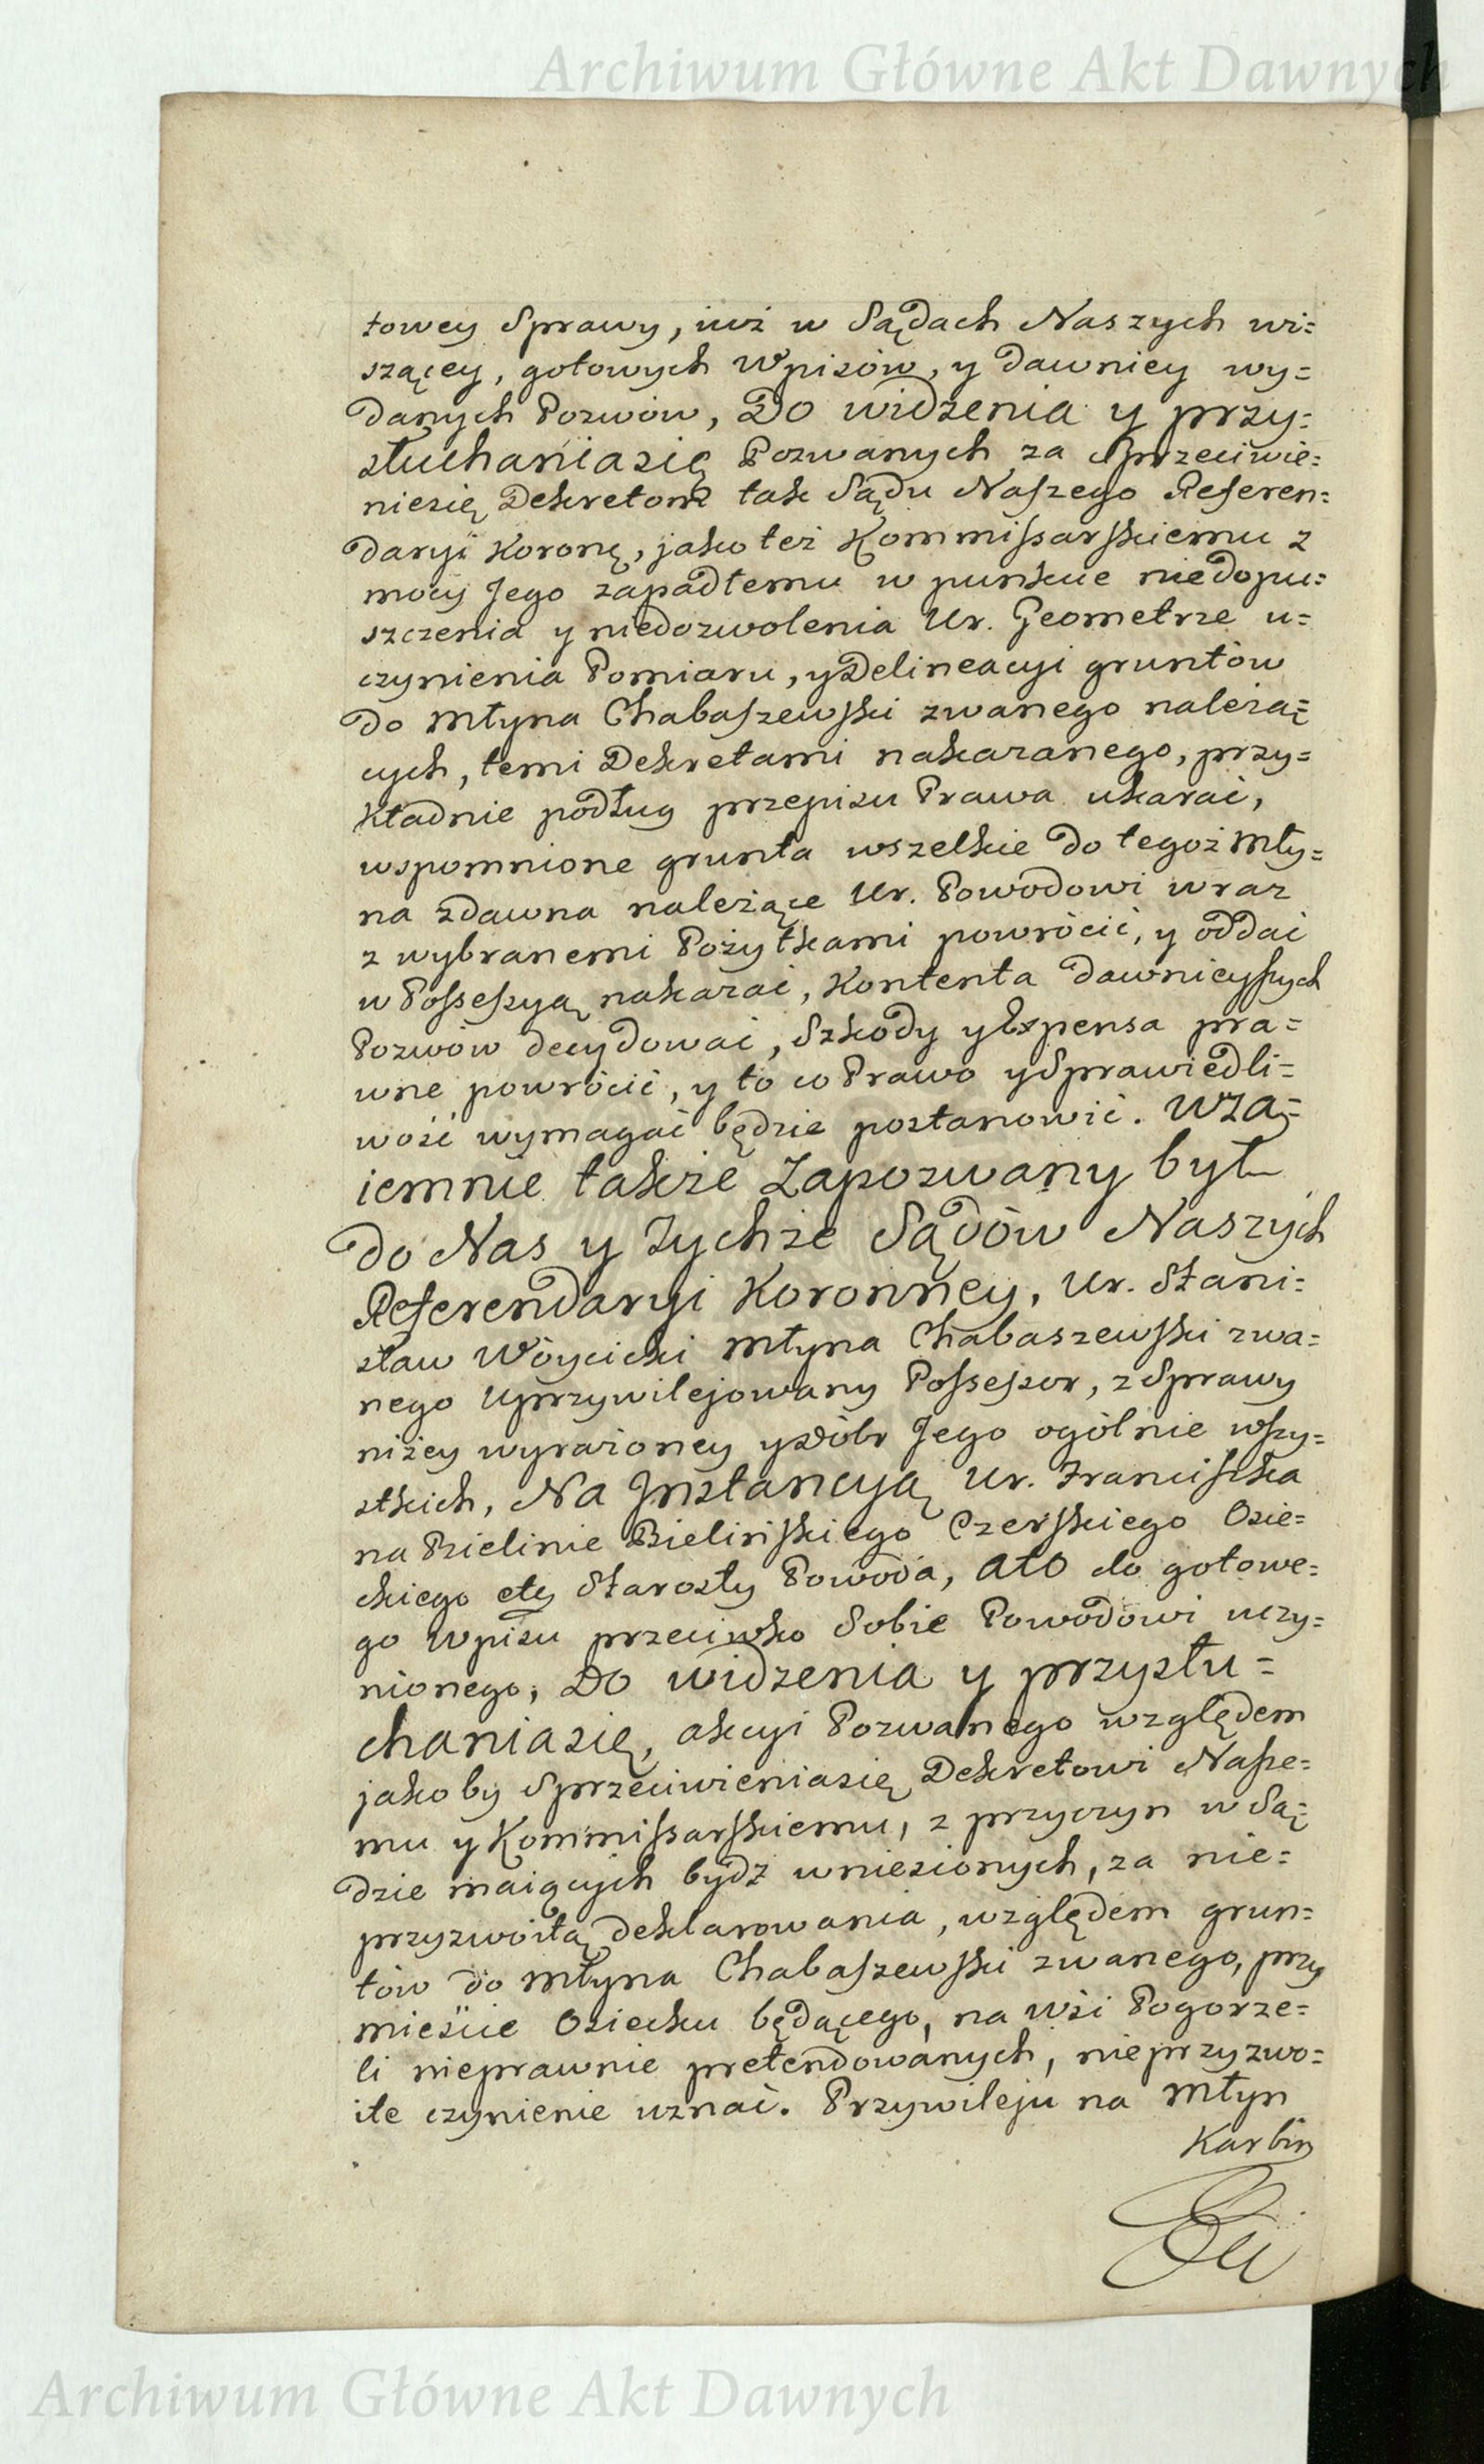 Archiwum Główne Akt Dawnych
towey Sprawy, iuż w Sądach Naszych wi=
szącey, gotowych Wpisów, y dawniey wy=
danych Pozwów, Do widzenia y przy=
słuchania się Pozwanych za Sprzeciwie=
niesię Dekretom tak Sądu Naszego Referen=
daryi Koronę, jako też Kommissarskiemu z
mocy Jego zapadłemu w punkcie niedopu=
szczenia y niedozwolenia Ur. Geometrze u=
czynienia Pomiaru, y Delineacyi gruntów
do Młyna Chabaszewski zwanego należą=
cych, temi Dekretami nakazanego, przy=
kładnie podług przepisu Prawa ukarać,
wspomnione grunta wszelkie do tegoż Mły=
na zdawna należące Ur. Powodowi wraz
z wybranemi Pożytkami powrócić, y oddać
w Possessyą nakazać, Kontenta dawnieyszych
Pozwów decydować, Szkody y Expensa pra=
wne powrócić, y to co Prawo y Sprawiedli=
wość wymagać będzie postanowić. Wza=
iemnie także Zapozwany był
do Nas y Tychże Sądów Naszych
Referendaryi Koronney, Ur. Stani=
sław Wóycicki Młyna Chabaszewski zwa=
nego Uprzywilejowany Possessor, z Sprawy
niżey wyrażoney y Dóbr Jego ogólnie wszy=
stkich, Na Jnstancyą Ur. Franciszka
na Bielinie Bielińskiego Czerskiego Osie=
ckiego etc Starosty Powoda, Ato do gotowe=
go Wpisu przeciwko Sobie Powodowi uczy=
nionego, Do widzenia y przysłu=
chania się, akcyi Pozwanego względem
jakoby Sprzeciwieniasię Dekretowi Nasze=
mu y Kommissarskiemu, z przyczyn w Są=
dzie maiących bydź wniesionych, za nie=
przyzwoitą deklarowania, względem grun=
tów do Młyna Chabaszewski zwanego, przy
mieście Osiecku będącego, na Wsi Pogorze=
li nieprawnie pretendowanych, nieprzyzwo=
ite czynienie uznać. Przywileju na Młyn
Karbin
Archiwum Główne Akt Dawnych